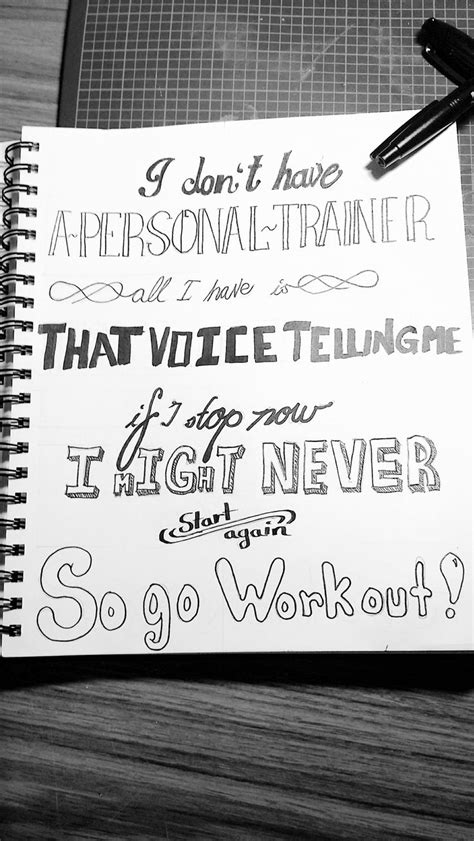 I don't have
A~PERSONAL~TRAINER
all I have is
THAT VOICE TELLING ME
if I stop now
I MIGHT NEVER
Start
again
So go Workout!